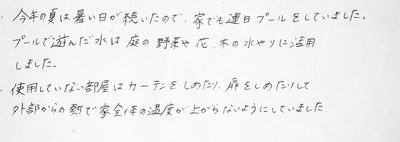 今年の夏は暑い日が続いたので、家でも連日プールをしていました。
プールで遊んだ水は庭の野菜や花、木の水やりに活用
しました。
使用していない部屋はカーテンをしめたり、扉をしめたりして
外部からの熱で家全体の温度が上がらないようにしていました。